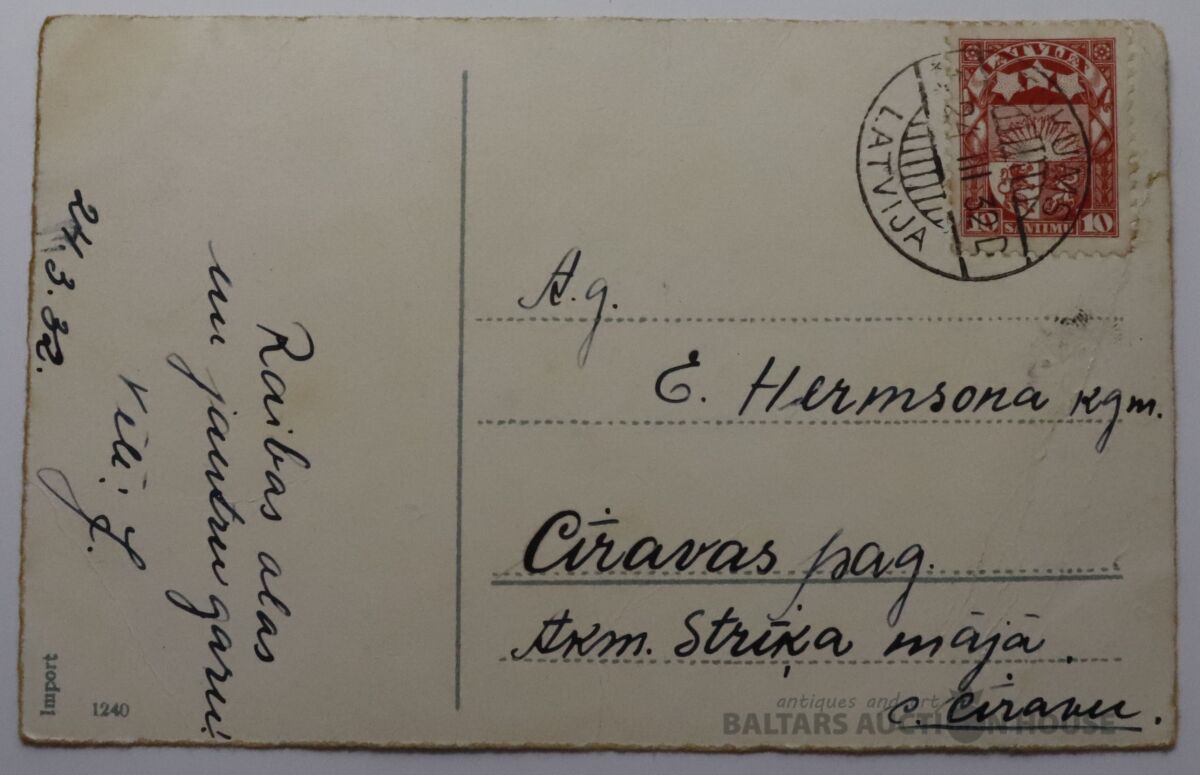 Raibas olas
un jautru garu!
Vēlē: J.
24.3.32.
Import
1240
LATVIJA
24 III 32 C
LATVIJA
10 SANTIMU 10
A.g.
E. Hermsona kgm.
Cīravas pag.
Akm. Strīķa mājā.
c. Cīravu.
antiques and art
BALTARS AUCTION HOUSE